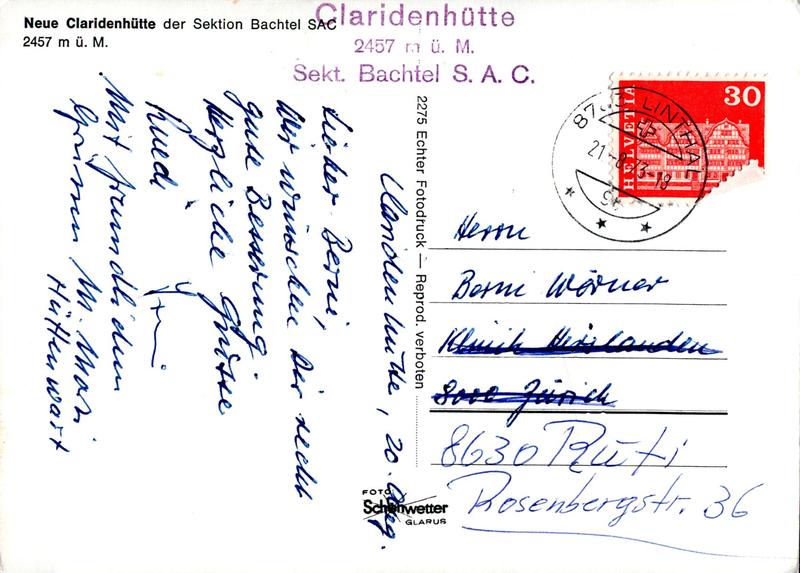 Neue Claridenhütte der Sektion Bachtel SAC
2457 m ü. M.
Claridenhütte
2457 m ü. M.
Sekt. Bachtel S. A. C.
HELVETIA
30
LINTHAL
21.-8.73-18
2275 Echter Fotodruck — Reprod. verboten
Claridenhütte, 20. Aug.
Lieber Berni,
Wir wünschen Dir recht
gute Besserung.
Herzliche Grüsse
Ruedi
Mit freundlichen
Grüssen
Hüttenwart
Herrn
Berni Wörner
Klinik Hirslanden
8000 Zürich
8630 Rüti
Rosenbergstr. 36
FOTO
Schönwetter
GLARUS